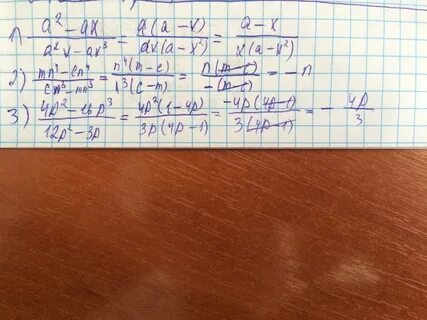 1) (a² - ax)/(a²x - ax³) = a(a - x)/ax(a - x²) = (a - x)/x(a - x²)
2) (mn⁴ - cn⁴)/(cn³ - mn³) = n⁴(m - c)/n³(c - m) = n(m - c)/-(m - c) = - n
3) (4p² - 16p³)/(12p² - 3p) = 4p²(1 - 4p)/3p(4p - 1) = -4p(4p - 1)/3(4p - 1) = - 4p/3